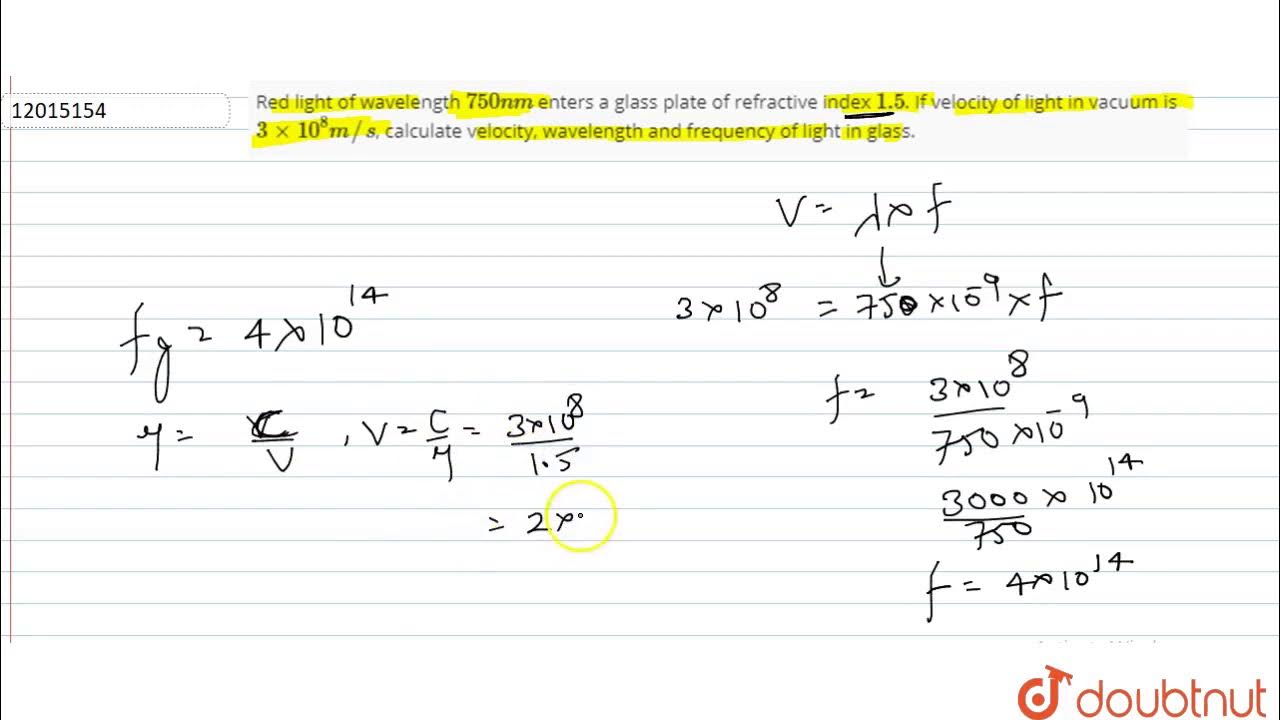 12015154
Red light of wavelength 750nm enters a glass plate of refractive index 1.5. If velocity of light in vacuum is
3 × 10⁸m/s, calculate velocity, wavelength and frequency of light in glass.
V = λ × f
3 × 10⁸ = 750 × 10⁻⁹ × f
f = 3 × 10⁸ / 750 × 10⁻⁹
3000 × 10¹⁴ / 750
f = 4 × 10¹⁴
fg = 4 × 10¹⁴
μ = C / V , V = C / μ = 3 × 10⁸ / 1.5
= 2 ×
doubtnut